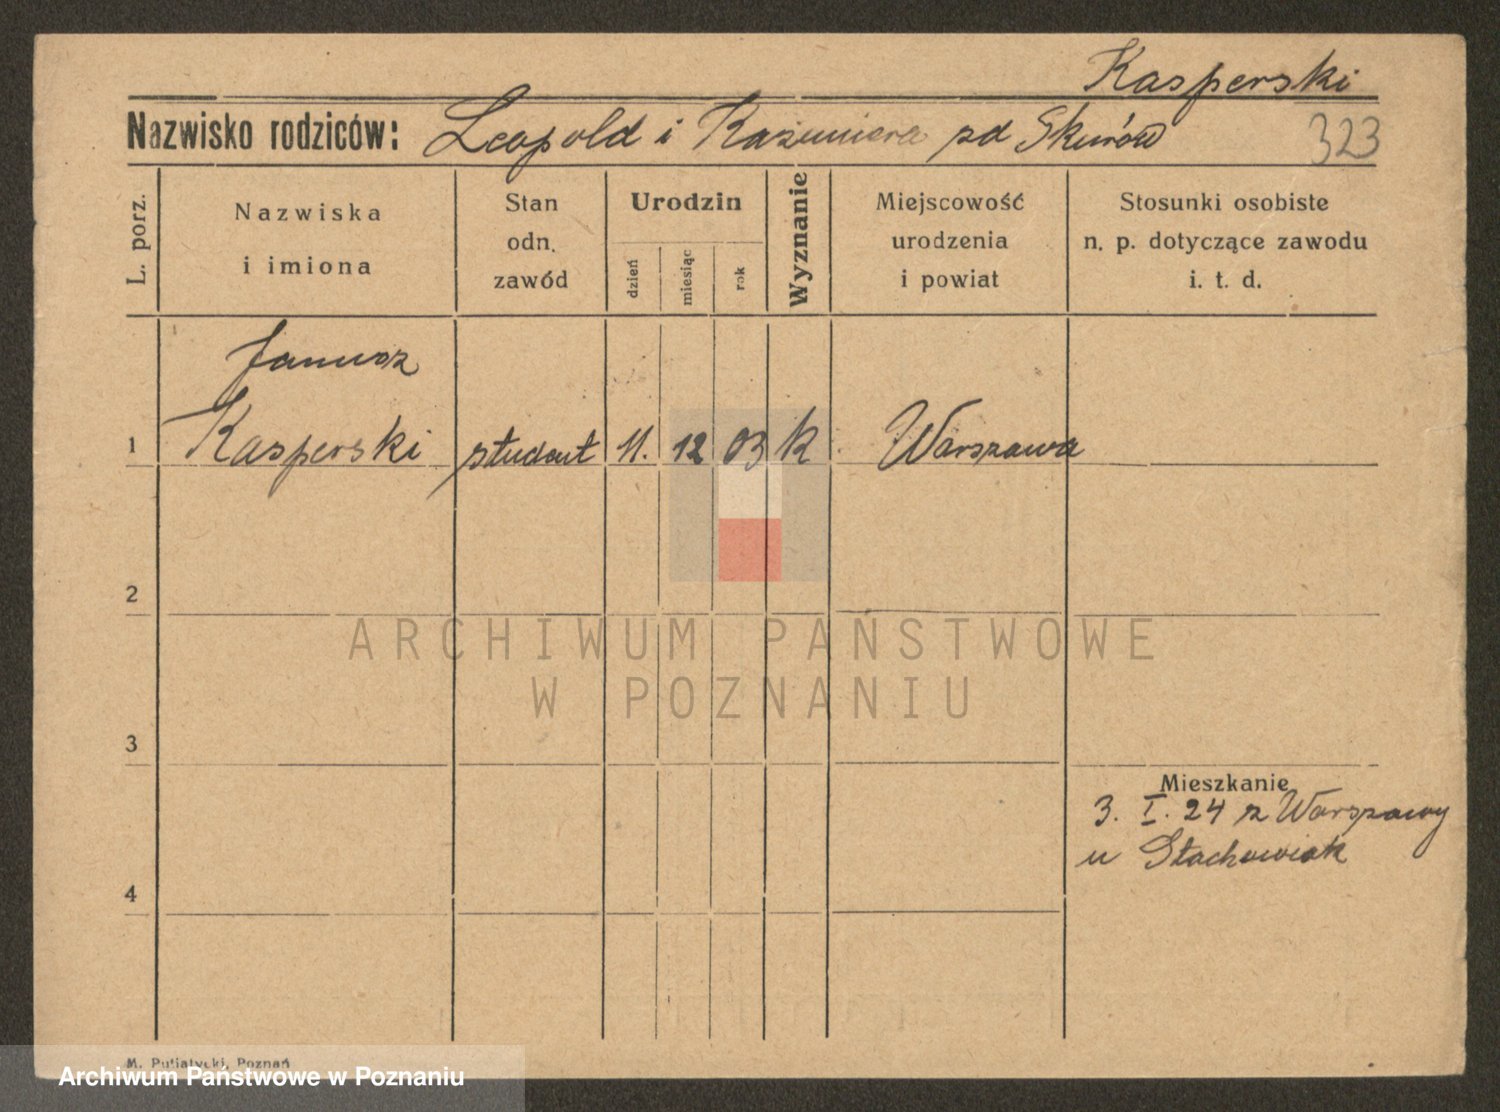 Kasperski
Nazwisko rodziców: Leopold i Kazimiera zd Skurów
323
L. porz.
Nazwiska
i imiona
Stan
odn.
zawód
Urodzin
dzień
miesiąc
rok
Wyznanie
Miejscowość
urodzenia
i powiat
Stosunki osobiste
n. p. dotyczące zawodu
i. t. d.
Janusz
1 Kasperski student 11. 12 03 k Warszawa
2
ARCHIWUM PAŃSTWOWE
W POZNANIU
3
Mieszkanie
3. I. 24 z Warszawy
u Stachowiak
4
M. Putiatycki, Poznań
Archiwum Państwowe w Poznaniu